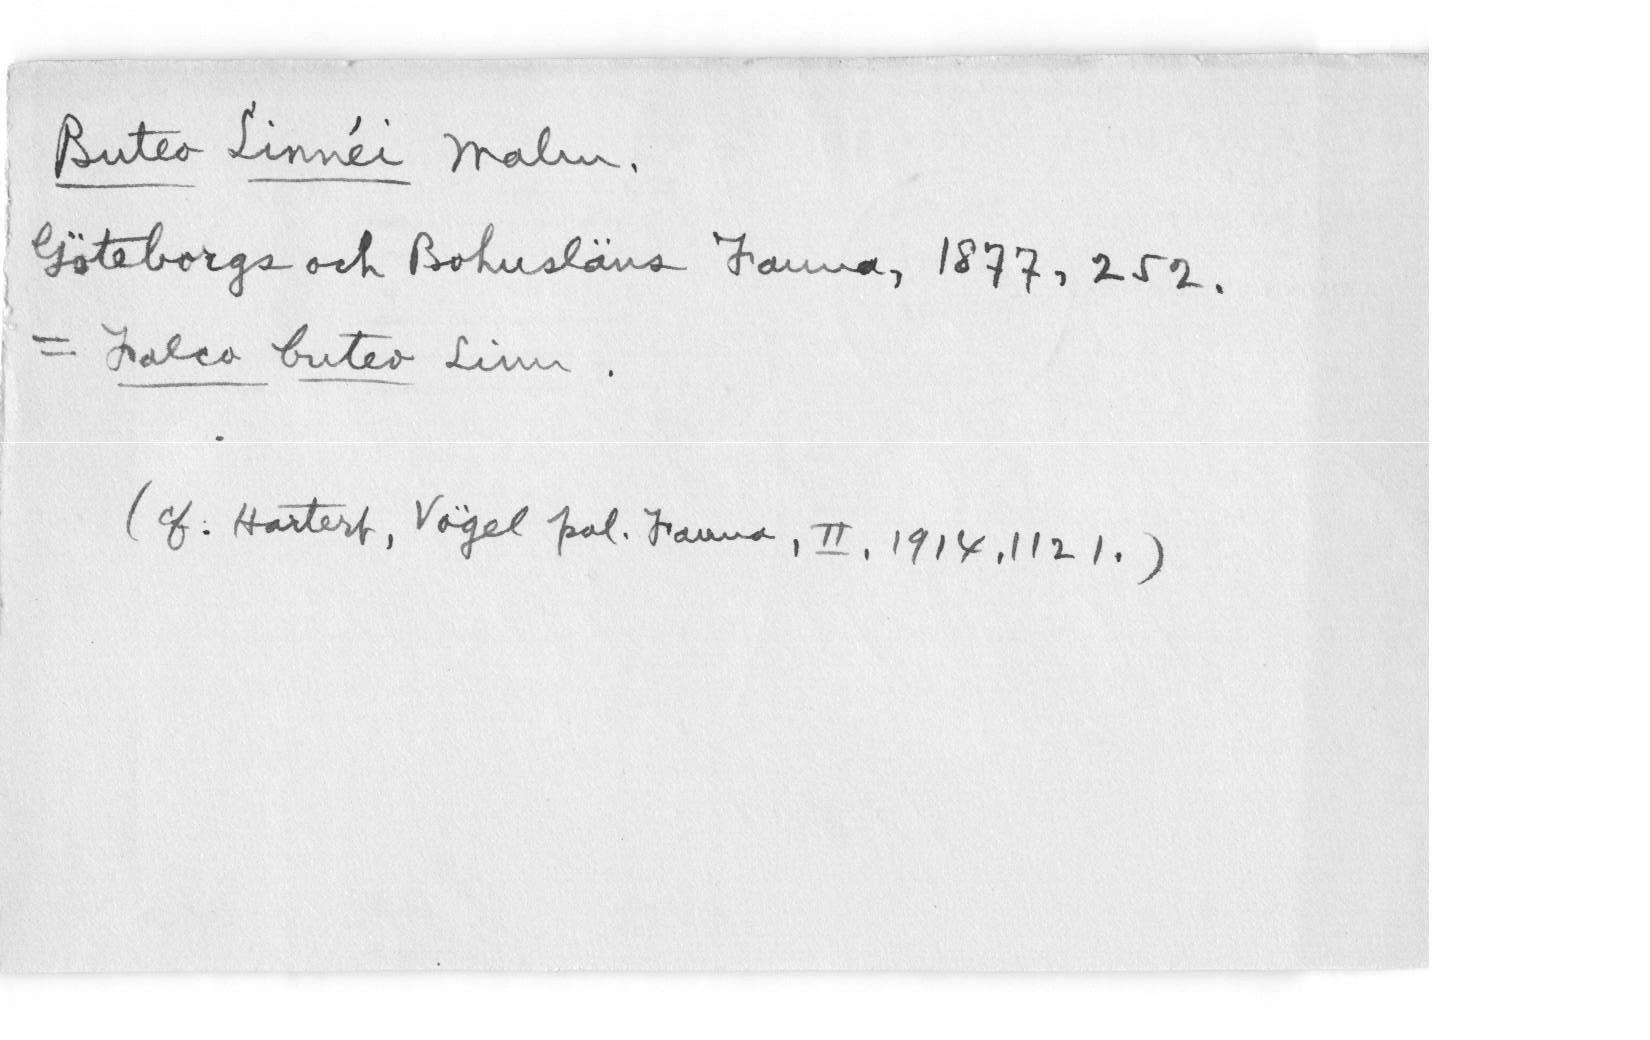 Buteo Linnéi Malm.
Göteborgs och Bohusläns Fauna, 1877, 252.
= Falco buteo Linn.
(cf. Hartert, Vögel pal. Fauna, II, 1914, 1121.)